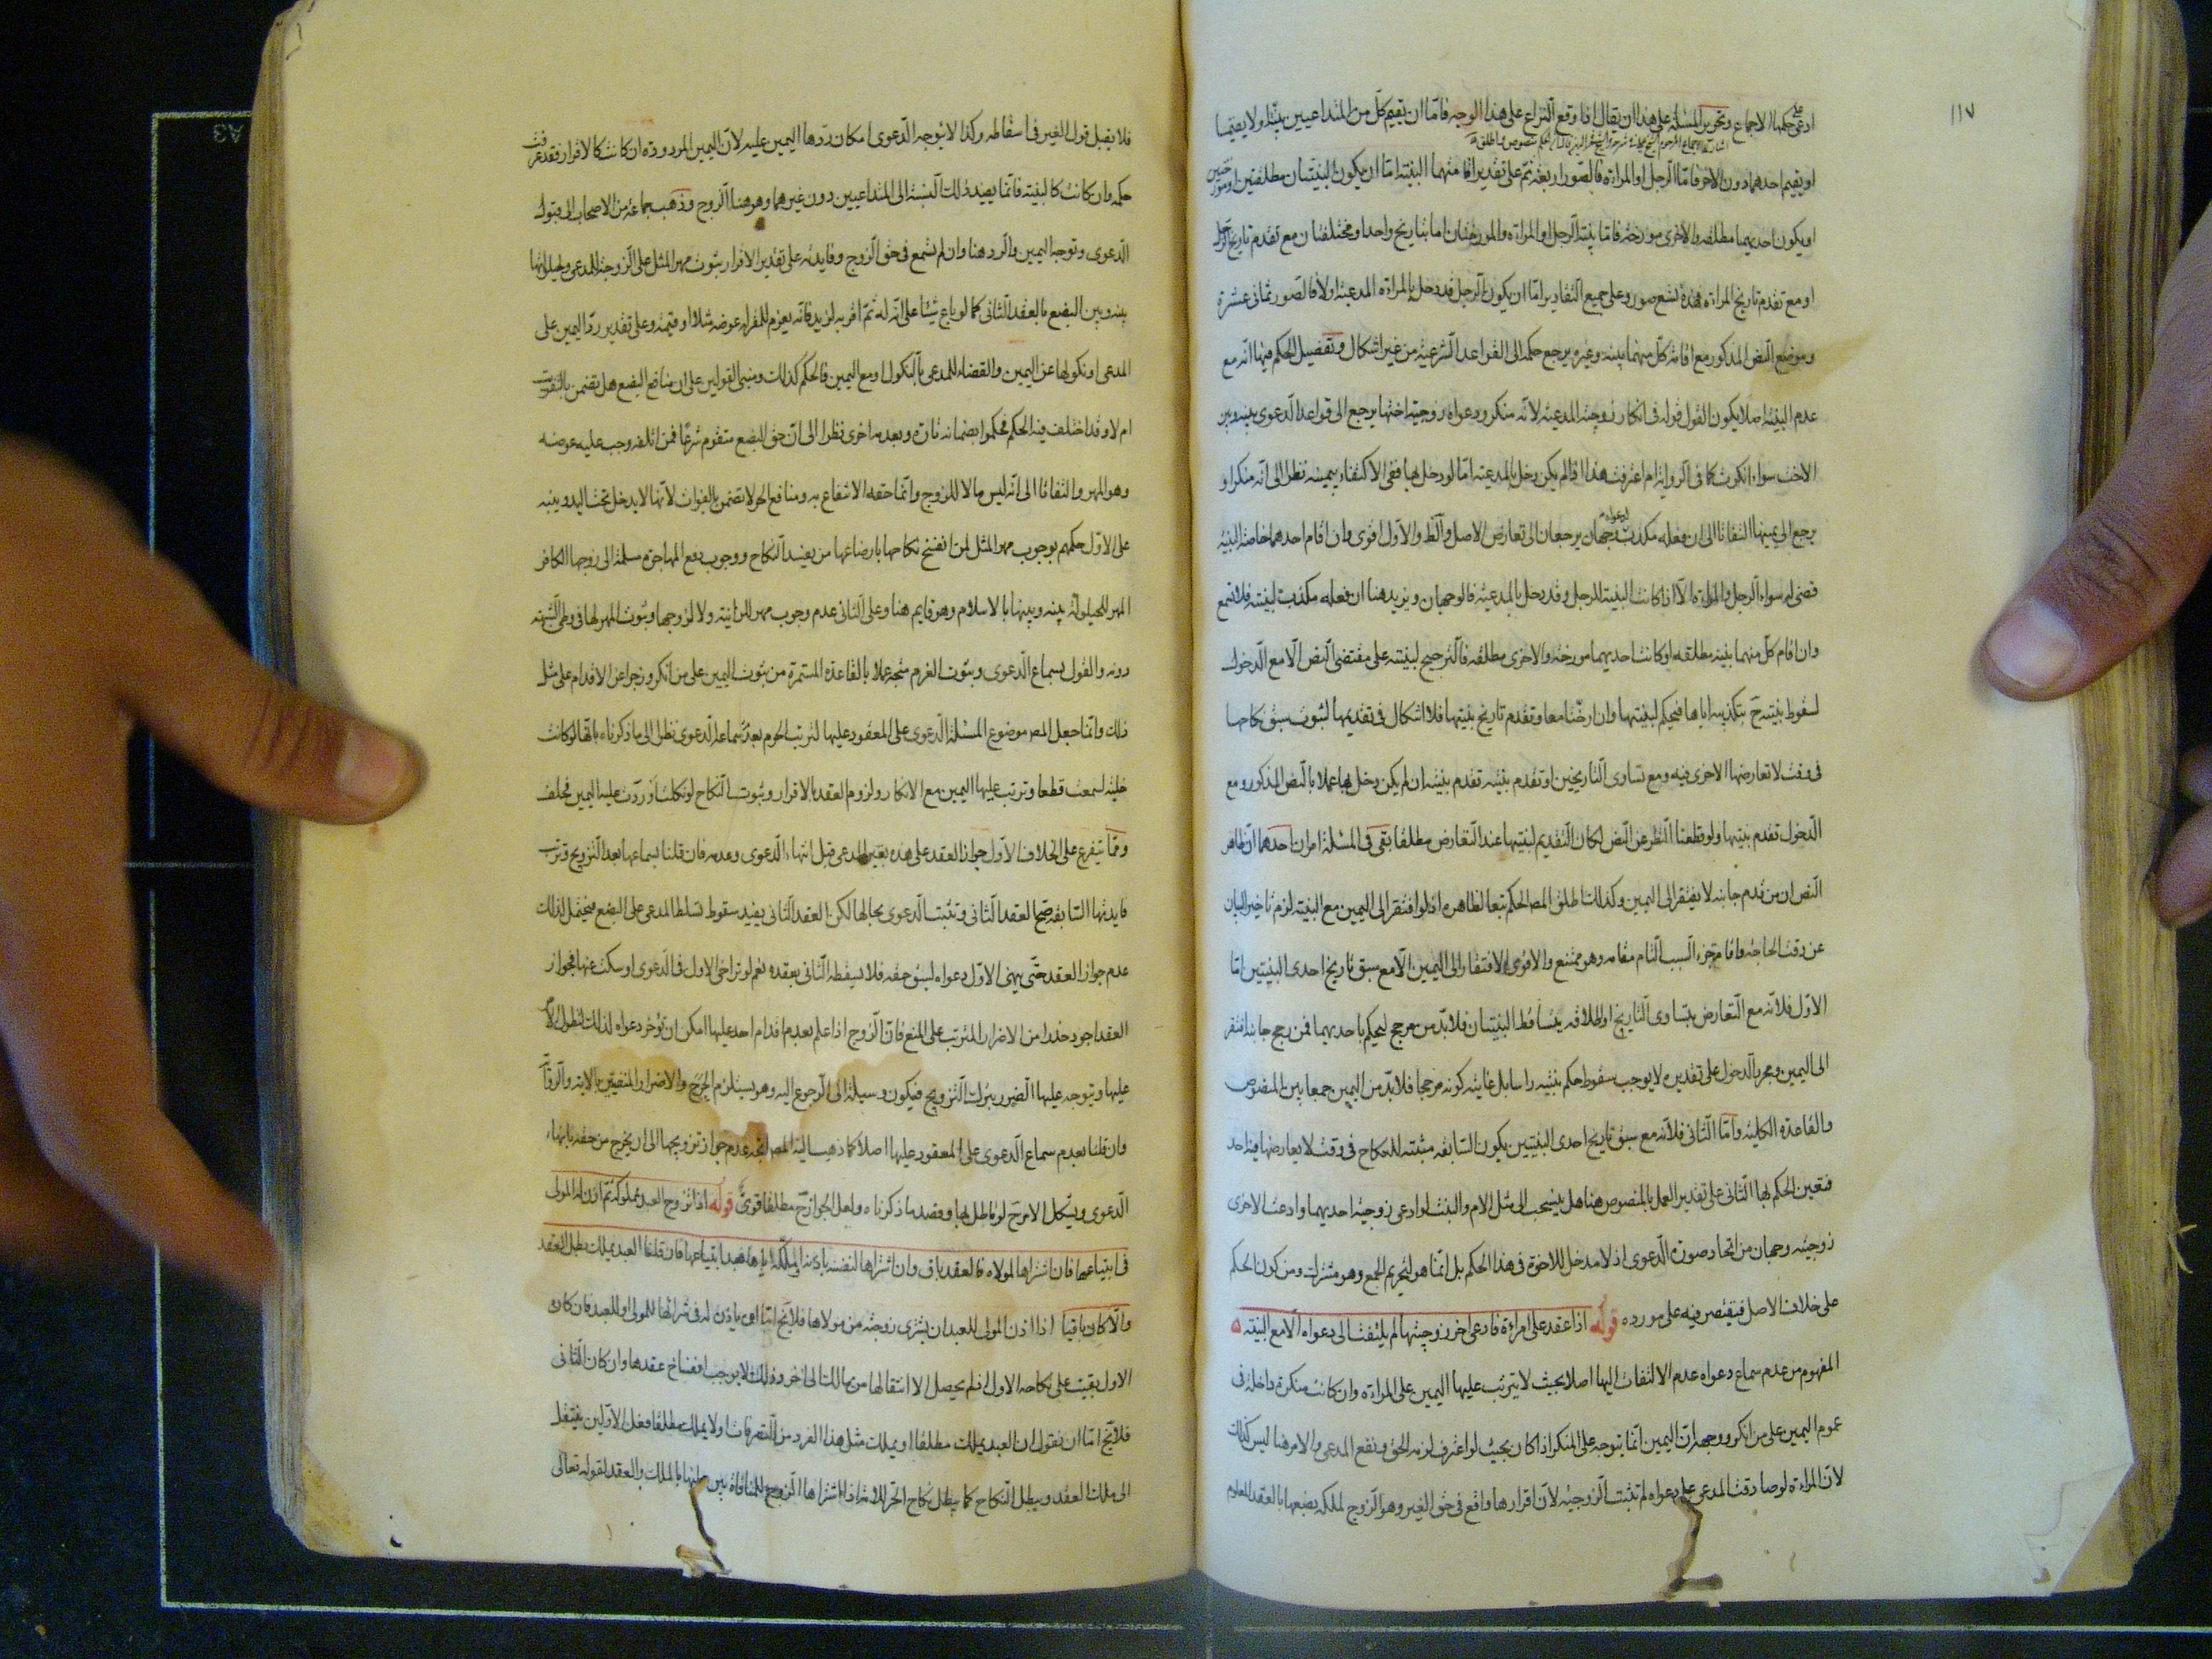 ١١٧
ادعى عليه حكمها الاجماع وتحرير المسئلة على هذا ان يقال اذا وقع النزاع على هذا الوجه فاما ان يقيم كل من المتداعيين بينة او لا يقيمها
او يقيم احدهما دون الاخر فاما الرجل او المراة فالصور اربعة ثم على تقدير اقامتهما البينة اما ان يكون البينتان مطلقتين او مورختين
او يكون احديهما مطلقة والاخرى مورخة فاما بينة الرجل او المراة والمورختان اما بتاريخ واحد او مختلفتان مع تقدم تاريخ الرجل
او مع تقدم تاريخ المراة فهذه تسع صور وعلى جميع التقادير اما ان يكون الرجل قد دخل بالمراة المدعية او لا فالصور ثمانى عشرة
وموضع النص المذكور مع اقامة كل منهما بينة وغيره يرجع حكمه الى القواعد الشرعية من غير اشكال وتفصيل الحكم فيها انه مع
عدم البينة اصلا يكون القول قوله فى انكار زوجية المدعية لانه منكر ودعواه زوجية اختها يرجع الى قواعد الدعوى بينه وبين
الاخت سواء انكرت كما فى الرواية ام اعترفت هذا اذا لم يكن دخل بالمدعية اما لو دخل بها ففى الاكتفاء بيمينه نظرا الى انه منكر او
يرجع الى يمينها التفاتا الى ان فعله مكذب لدعواه وجهان يرجعان الى تعارض الاصل والظ والاول اقوى وان اقام احدهما خاصة البينة
قضى له سواء الرجل والمراة الا اذا كانت البينة للرجل وقد دخل بالمدعية فالوجهان ويزيد هنا ان فعله مكذب لبينته فلا تسمع
وان اقام كل منهما بينة مطلقة او كانت احديهما مورخة والاخرى مطلقة فالترجيح لبينته على مقتضى النص الا مع الدخول
لسقوط بينته ح بتكذيبه اياها فيحكم لبينتها وان ارختا معا وتقدم تاريخ بينتها فلا اشكال فى تقديمها لثبوت سبق نكاحها
فى وقت لا تعارضها الاخرى فيه ومع تساوى التاريخين او تقدم بينته تقدم بينته ان لم يكن دخل بها عملا بالنص المذكور ومع
الدخول تقدم بينتها ولو قطعنا النظر عن النص لكان التقديم لبينتها عند التعارض مطلقا بقى فى المسئلة امران احدهما ان ظاهر
النص ان من قدم جانبه لا يفتقر الى اليمين وكذلك اطلق المص الحكم تبعا لظاهره اذ لو افتقر الى اليمين مع البينة لزم تاخير البيان
عن وقت الحاجة واقامة جزء السبب التام مقامه وهو ممتنع والاقوى الافتقار الى اليمين الا مع سبق تاريخ احدى البينتين اما
الاول فلانه مع التعارض بتساوى التاريخ او اطلاقه يتساقط البينتان فلا بد من مرجح ليحكم باحديهما فمن رجح جانبه افتقر
الى اليمين ومجرد الدخول على تقديره لا يوجب سقوط حكم بينته راسا بل غايته كونه مرجحا فلا بد من اليمين جمعا بين المنصوص
والقاعدة الكلية واما الثانى فلانه مع سبق تاريخ احدى البينتين يكون السابقة مثبتة للنكاح فى وقت لا يعارضها فيه احد
فتعين الحكم بها الثانى على تقدير العمل بالمنصوص هنا هل ينسحب الى مثل الام والبنت لو ادعى زوجية احديهما وادعت الاخرى
زوجيته وجهان من اتحاد صورة الدعوى اذ لا مدخل للاخوة فى هذا الحكم بل انما هو لتحريم الجمع وهو مشترك ومن كون الحكم
على خلاف الاصل فيقتصر فيه على مورده قوله اذا عقد على امراة فادعى اخر زوجيتها لم يلتفت الى دعواه الا مع البينة
المفهوم من عدم سماع دعواه عدم الالتفات اليها اصلا بحيث لا يترتب عليها اليمين على المراة وان كانت منكرة داخلة فى
عموم اليمين على من انكر ووجهه ان اليمين انما يتوجه على المنكر اذا كان بحيث لو اعترف لزمه الحق ونفع المدعى والامر هنا ليس كذلك
لان المراة لو صادقت المدعى على دعواه لم تثبت الزوجية لان اقرارها واقع فى حق الغير وهو الزوج لملكه بضعها بالعقد المعلوم
فلا يقبل قول الغير فى اسقاطه وكذا لا يتوجه الدعوى امكان ردها اليمين عليه لان اليمين المردودة ان كانت كالاقرار فقد عرفت
حكمه وان كانت كالبينة فانما يفيد ذلك بالنسبة الى المتداعيين دون غيرهما وهو هنا الزوج وذهب جماعة من الاصحاب الى قبول
الدعوى وتوجه اليمين والرد هنا وان لم تسمع فى حق الزوج وفايدته على تقدير الاقرار ثبوت مهر المثل على الزوجة للمدعى لحيلولتها
بينه وبين البضع بالعقد الثانى كما لو باع شيئا على انه له ثم اقر به لزيد فانه يغرم للمقر له عوضه مثلا او قيمة وعلى تقدير رد اليمين على
المدعى او نكولها عن اليمين والقضاء للمدعى بالنكول او مع اليمين فالحكم كذلك ومبنى القولين على ان منافع البضع هل تضمن بالتفويت
ام لا وقد اختلف فيه الحكم فحكموا بضمانه تارة وبعدمه اخرى نظرا الى ان حق البضع متقوم شرعا فمن اتلفه وجب عليه عوضه
وهو المهر والتفاتا الى انه ليس مالا للزوج وانما حقه الانتفاع به ومنافع الحر لا تضمن بالفوات لانها لا يدخل تحت اليد وينبه
على الاول حكمهم بوجوب مهر المثل لمن انفسخ نكاحها بارضاعها من يفسد النكاح ووجوب دفع المهاجرة مسلمة الى زوجها الكافر
المهر للحيلولة بينه وبينها بالاسلام وهو قايم هنا وعلى الثانى عدم وجوب مهر للزانية ولا لزوجها وثبوت المهر لها فى وطى الشبهة
دونه والقول بسماع الدعوى وثبوت الغرم متجه عملا بالقاعدة المستمرة من ثبوت اليمين على من انكر وزجرا عن الاقدام على مثل
ذلك وانما جعل المص موضوع المسئلة الدعوى على المعقود عليها لترتب الحرم بعدم سماع الدعوى نظرا الى ما ذكرناه بانها لو كانت
خلية لسمعت قطعا وترتب عليها اليمين مع الانكار ولزوم العقد بالاقرار وثبوت النكاح لو نكلت او ردت عليه اليمين فحلف
ومما يتفرع على الخلاف الاول جواز العقد على هذه لغير المدعى قبل انهاء الدعوى وعدمه فان قلنا بسماعها بعد التزويج وترتب
فايدتها السابقة صح العقد الثانى وتثبت الدعوى بحالها لكن العقد الثانى يفيد سقوط تسلط المدعى على البضع فيحتمل لذلك
عدم جواز العقد حتى ينهى الاول دعواه لسبق حقه فلا يسقطه الثانى بعقده نعم لو تراخى الاول فى الدعوى او سكت عنها فجواز
العقد اجود حذرا من الاضرار المترتب على المنع فان الزوج اذا علم بعدم اقدام احد عليها امكن ان يؤخر دعواه لذلك ليطول الامر
عليها ويتوجه عليها الضرر بترك التزويج فيكون وسيلة الى الرجوع اليه وهو يستلزم الحرج والاضرار المنفيين بالاية والرواية
وان قلنا بعدم سماع الدعوى على المعقود عليها اصلا كما ذهب اليه المص اتجه عدم جواز تزويجها الى ان يخرج من حقه بانهاء
الدعوى ويشكل الامر ح لو ماطل بها وقصد ما ذكرناه ولعل الجواز ح مطلقا قوى قوله اذا تزوج العبد بمملوكة ثم اذن له المولى
فى ابتياعها فان اشتراها لمولاه فالعقد باق وان اشتراها لنفسه باذنه او ملكه اياها بعد ابتياعها فان قلنا العبد يملك بطل العقد
والا كان باقيا اذا اذن المولى للعبد ان يشترى زوجته من مولاها فلا يخ اما ان ياذن له فى شرائها للمولى او للعبد فان كان
الاول بقيت على نكاحه الاول اذ لم يحصل الا انتقالها من مالك الى اخر وذلك لا يوجب انفساخ عقدها وان كان الثانى
فلا يخ اما ان نقول ان العبد يملك مطلقا او يملك مثل هذا الفرد من التصرفات او لا يملك مطلقا فعلى الاولين ينتقل
الى ملك العقد ويبطل النكاح كما يبطل نكاح الحر للامة اذا اشتراها الزوج للمنافاة بين وطئها بالملك والعقد لقوله تعالى